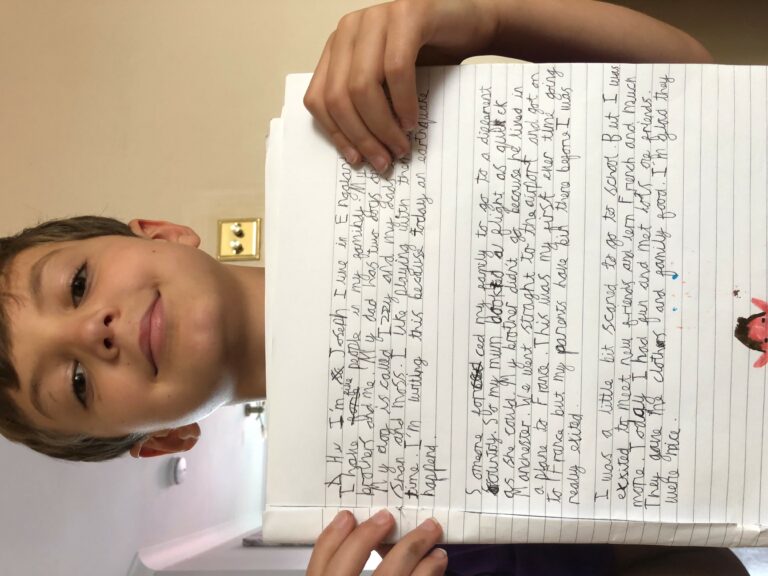 Hi I'm Joseph I live in England
I have five people in my family. My
brothers and me. My dad has two dogs and
My dog is called Izzy and my dad
Shan and moss. I like playing with them
time. I'm writing this because today an earthquake
happend.
Someone forced my family to go to a different
country. So my mum booked a flight as quick
as she could. My brother didn't go because he lives in
Manchester. We went straight to the airport and got on
a plane to France. This was my first ever time going
to France but my parents have bin there before. I was
really exited.
I was a little bit scared to go to school. But I was
exited to meet new friends and lern French and much
more. Today I had fun and met lots one friends.
They gave me clothes and family food. I'm glad they
were nice.